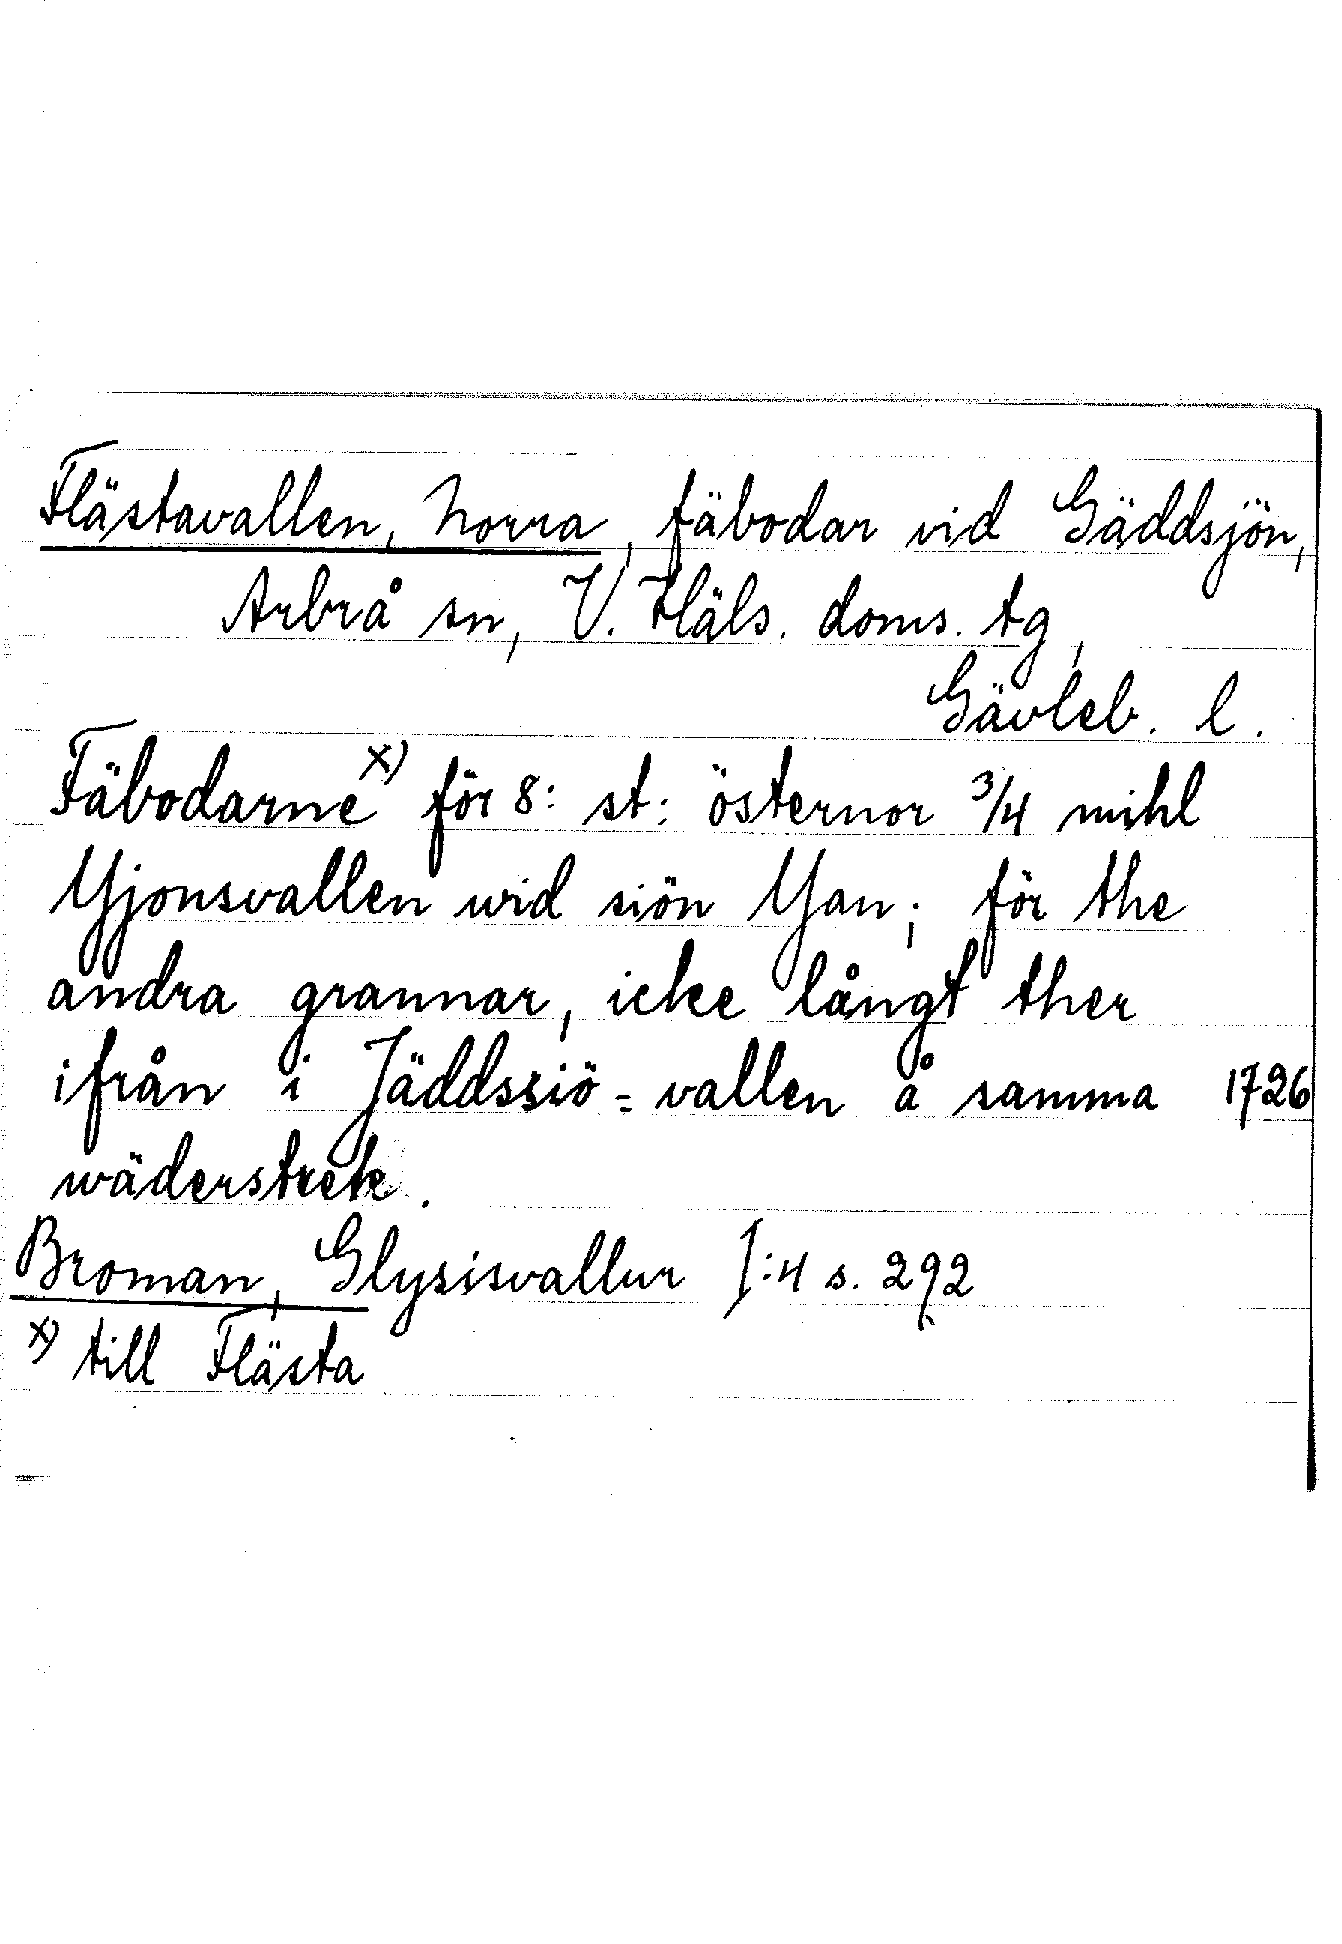 Flästavallen, Norra, fäbodar vid Gäddsjön,
Arbrå sn, V. Häls. doms. tg,
Gävleb. l.
Fäbodarne x) för 8: st: östernor 3/4 mihl
Yjonsvallen wid siön Yan; för the
andra grannar, icke långt ther
ifrån i Jäddssiö=vallen å samma 1726
wäderstrek.
Broman, Glysisvallur I:4 s. 292
x) till Flästa